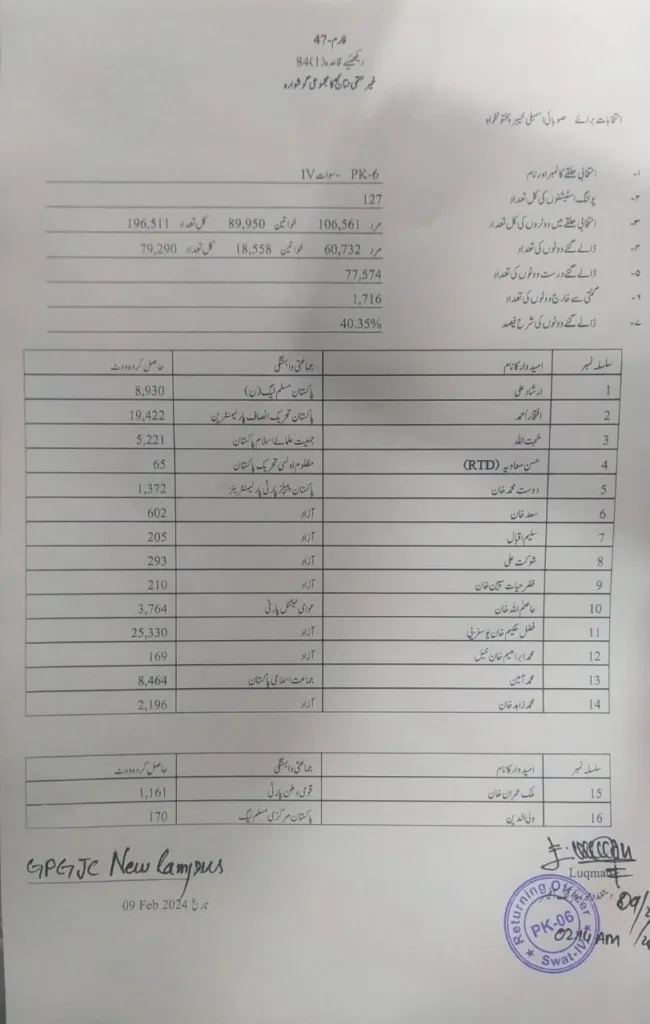 فارم-47
دیکھیے قاعدہ (1)84
غیر حتمی نتائج کا مجموعی گوشوارہ
انتخابات برائے صوبائی اسمبلی خیبر پختونخواہ
۱- انتخابی حلقے کا نمبر اور نام PK-6 -سوات IV
۲- پولنگ اسٹیشنوں کی کل تعداد 127
۳- انتخابی حلقے میں ووٹروں کی کل تعداد مرد 106,561 خواتین 89,950 کل تعداد 196,511
۴- ڈالے گئے ووٹوں کی تعداد مرد 60,732 خواتین 18,558 کل تعداد 79,290
۵- ڈالے گئے درست ووٹوں کی تعداد 77,574
۶- گنتی سے خارج ووٹوں کی تعداد 1,716
۷- ڈالے گئے ووٹوں کی شرح فیصد 40.35%
سلسلہ نمبر امیدوار کا نام جماعتی وابستگی حاصل کردہ ووٹ
1 ارشاد علی پاکستان مسلم لیگ (ن) 8,930
2 افتخار احمد پاکستان تحریک انصاف پارلیمنٹرین 19,422
3 محبت اللہ جمعیت علمائے اسلام پاکستان 5,221
4 حسن معاویہ (RTD) مظلوم اولسی تحریک پاکستان 65
5 دوست محمد خان پاکستان پیپلز پارٹی پارلیمنٹرینز 1,372
6 سعد خان آزاد 602
7 سلیم اقبال آزاد 205
8 شوکت علی آزاد 293
9 ظفر حیات سپین خان آزاد 210
10 عاصم اللہ خان عوامی نیشنل پارٹی 3,764
11 فضل حکیم خان یوسفزئی آزاد 25,330
12 محمد ابراہیم خان خیل آزاد 169
13 محمد آمین جماعت اسلامی پاکستان 8,464
14 محمد زاہد خان آزاد 2,196
سلسلہ نمبر امیدوار کا نام جماعتی وابستگی حاصل کردہ ووٹ
15 ملک عمران خان قومی وطن پارٹی 1,161
16 ولی الدین پاکستان مرکزی مسلم لیگ 170
GPGJC New Campus
Luqma
تاریخ 09 Feb 2024
Returning Officer
PK-06
Swat-IV
02:14 AM